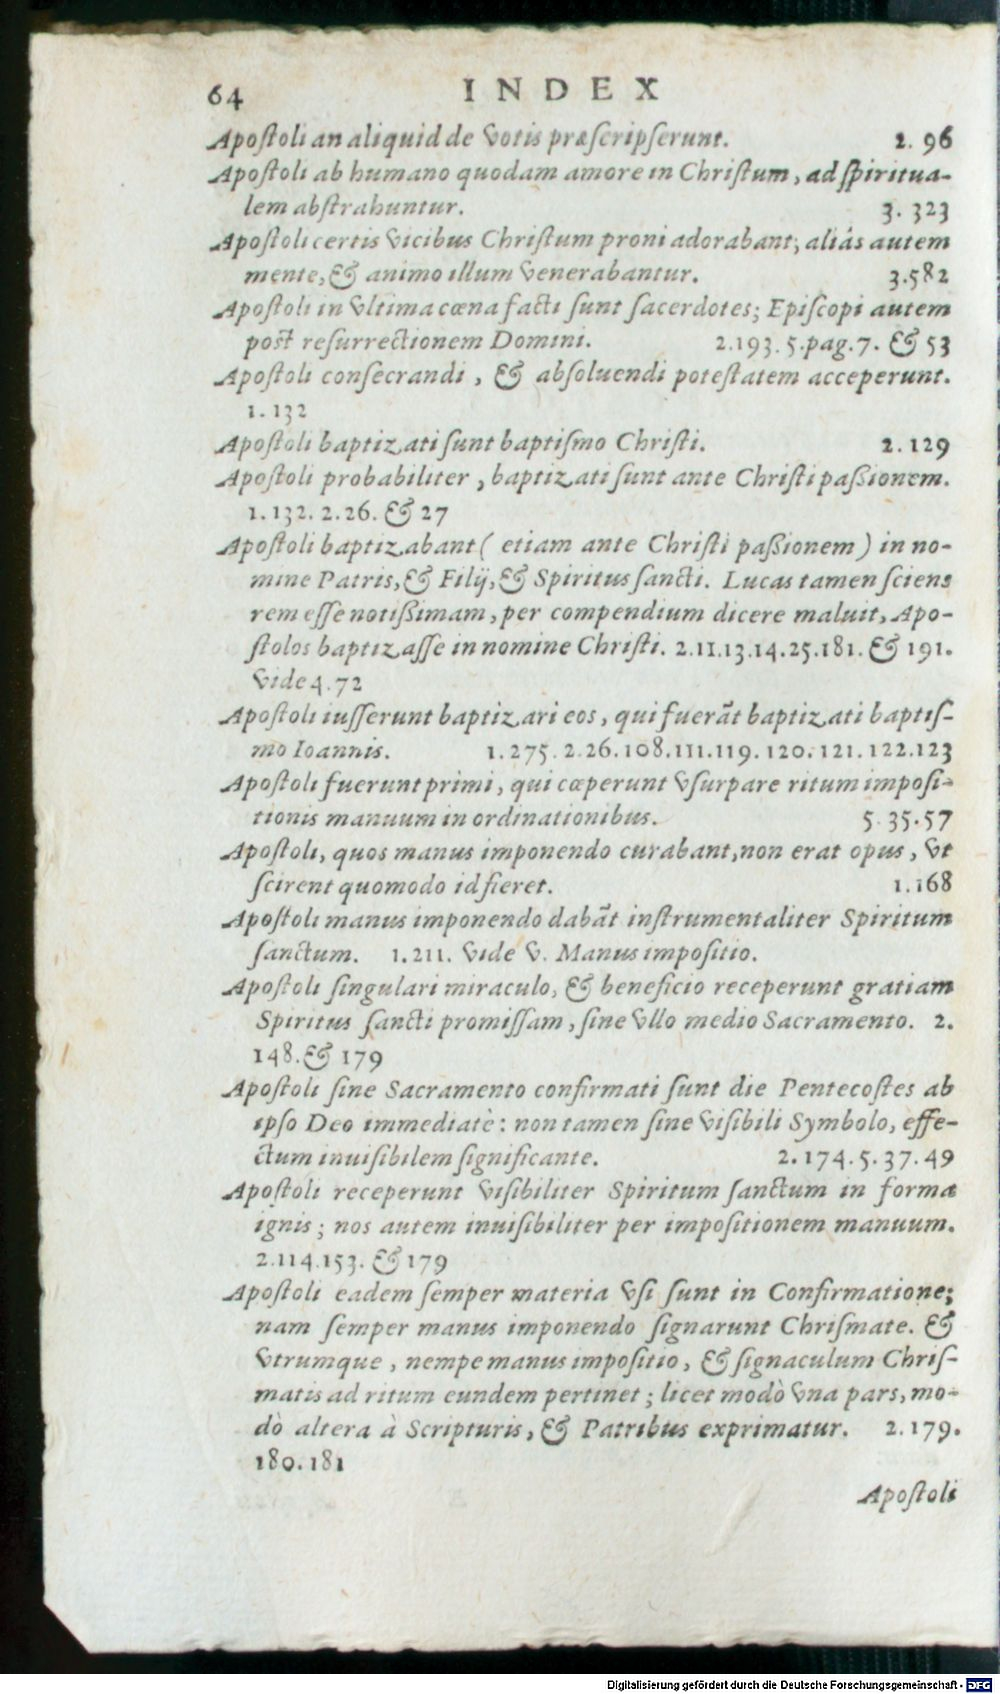 64 INDEX
Apostoli an aliquid de votis præscripserunt. 2. 96
Apostoli ab humano quodam amore in Christum, ad spiritua-
lem abstrahuntur. 3. 323
Apostoli certis vicibus Christum proni adorabant; aliàs autem
mente, & animo illum venerabantur. 3.582
Apostoli in vltima cœna facti sunt sacerdotes; Episcopi autem
post resurrectionem Domini. 2.193. 5.pag.7. & 53
Apostoli consecrandi, & absoluendi potestatem acceperunt.
1. 132
Apostoli baptizati sunt baptismo Christi. 2. 129
Apostoli probabiliter, baptizati sunt ante Christi passionem.
1. 132. 2. 26. & 27
Apostoli baptizabant (etiam ante Christi passionem) in no-
mine Patris, & Filij, & Spiritus sancti. Lucas tamen sciens
rem esse notissimam, per compendium dicere maluit, Apo-
stolos baptizasse in nomine Christi. 2.11.13.14.25.181. & 191.
vide 4. 72
Apostoli iusserunt baptizari eos, qui fuerāt baptizati baptis-
mo Ioannis. 1. 275. 2. 26. 108. 111. 119. 120. 121. 122. 123
Apostoli fuerunt primi, qui cœperunt vsurpare ritum imposi-
tionis manuum in ordinationibus. 5. 35. 57
Apostoli, quos manus imponendo curabant, non erat opus, vt
scirent quomodo id fieret. 1. 168
Apostoli manus imponendo dabāt instrumentaliter Spiritum
sanctum. 1. 211. vide v. Manus impositio.
Apostoli singulari miraculo, & beneficio receperunt gratiam
Spiritus sancti promissam, sine vllo medio Sacramento. 2.
148. & 179
Apostoli sine Sacramento confirmati sunt die Pentecostes ab
ipso Deo immediatè: non tamen sine visibili Symbolo, effe-
ctum inuisibilem significante. 2. 174. 5. 37. 49
Apostoli receperunt visibiliter Spiritum sanctum in forma
ignis; nos autem inuisibiliter per impositionem manuum.
2.114.153. & 179
Apostoli eadem semper materia vsi sunt in Confirmatione;
nam semper manus imponendo signarunt Chrismate. &
vtrumque, nempe manus impositio, & signaculum Chris-
matis ad ritum eundem pertinet; licet modò vna pars, mo-
dò altera à Scripturis, & Patribus exprimatur. 2. 179.
180. 181
Apostoli
Digitalisierung gefördert durch die Deutsche Forschungsgemeinschaft - DFG